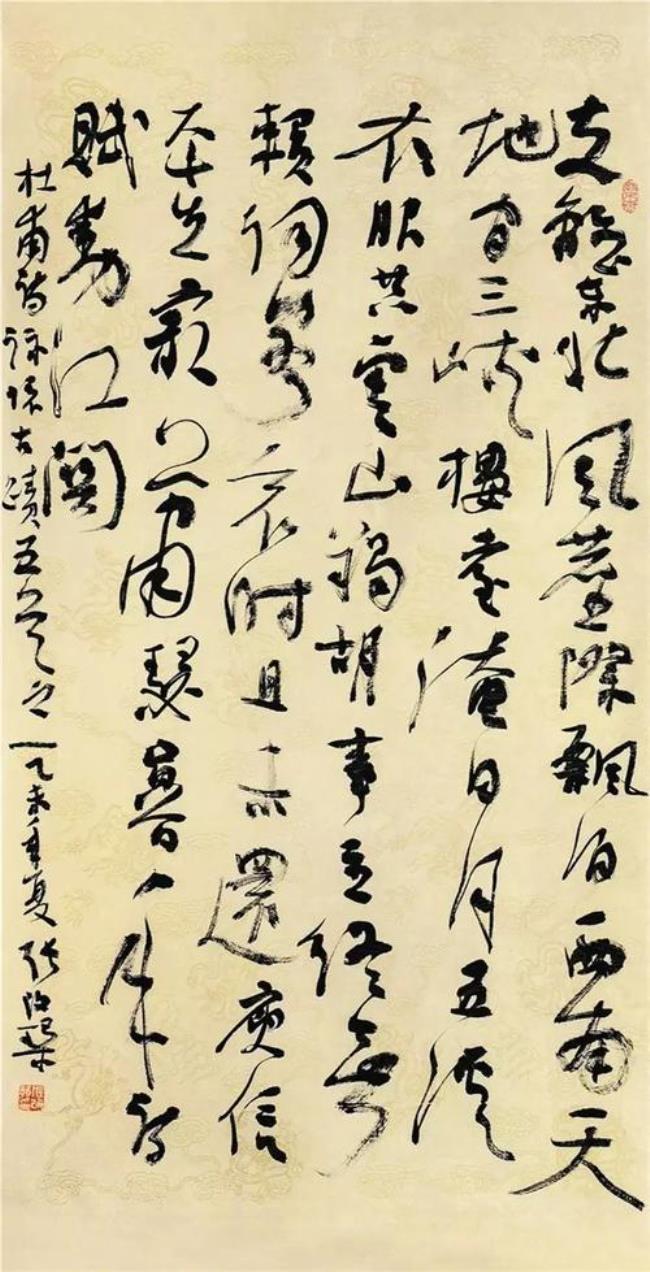 支離東北風塵際飄泊西南天
地間三峽樓臺淹日月五溪
衣服共雲山羯胡事主終無
賴詞客哀時且未還庾信
平生最蕭瑟暮年詩
賦動江關
杜甫詩詠懷古蹟五首之一乙未年夏 張